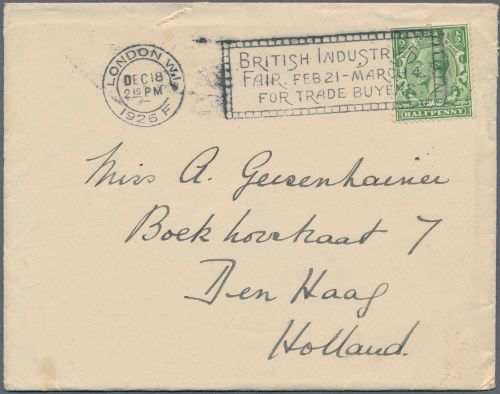 LONDON W.1.
DEC 18
2 15 PM
1926 F
BRITISH INDUSTR
FAIR. FEB 21 - MARCH 4
FOR TRADE BUYE
HALFPENNY
Miss A. Geisenhainer
Boekhorststraat 7
Den Haag
Holland.